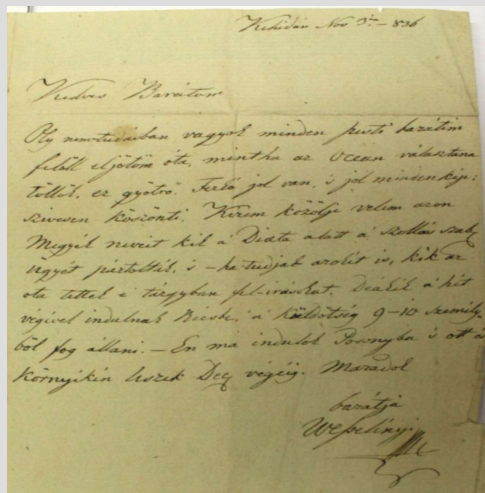 Kehidán Nov 3án – 836
Kedves Barátom
Oly nemtudásban vagyok minden pesti barátim
felöll eljötöm óta, mintha az Ócean választana
töllök, ez gyötrő. Ferkó jol van, is jol mindenkép;
szivesen köszönti. Kérem közölje velem azon
Megyék neveit kik a Diéta alatt á szollás szab
ügyét pártolták, s – ha tudják azokét is, kik az
ota tettek e tárgyban fel-irásokat. Diákék á hét
végivel indulnak Bécsbe, á küldötség 9–10 személy
ből fog állani. – Én ma indulok Posonyba is ott á
környikin leszek Dec végéig. Maradok
barátja
Wesselényi